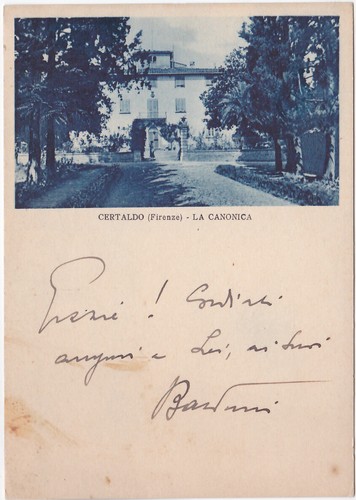 CERTALDO (Firenze) - LA CANONICA
Grazie! Cordiali
auguri a Lei, ai Suoi